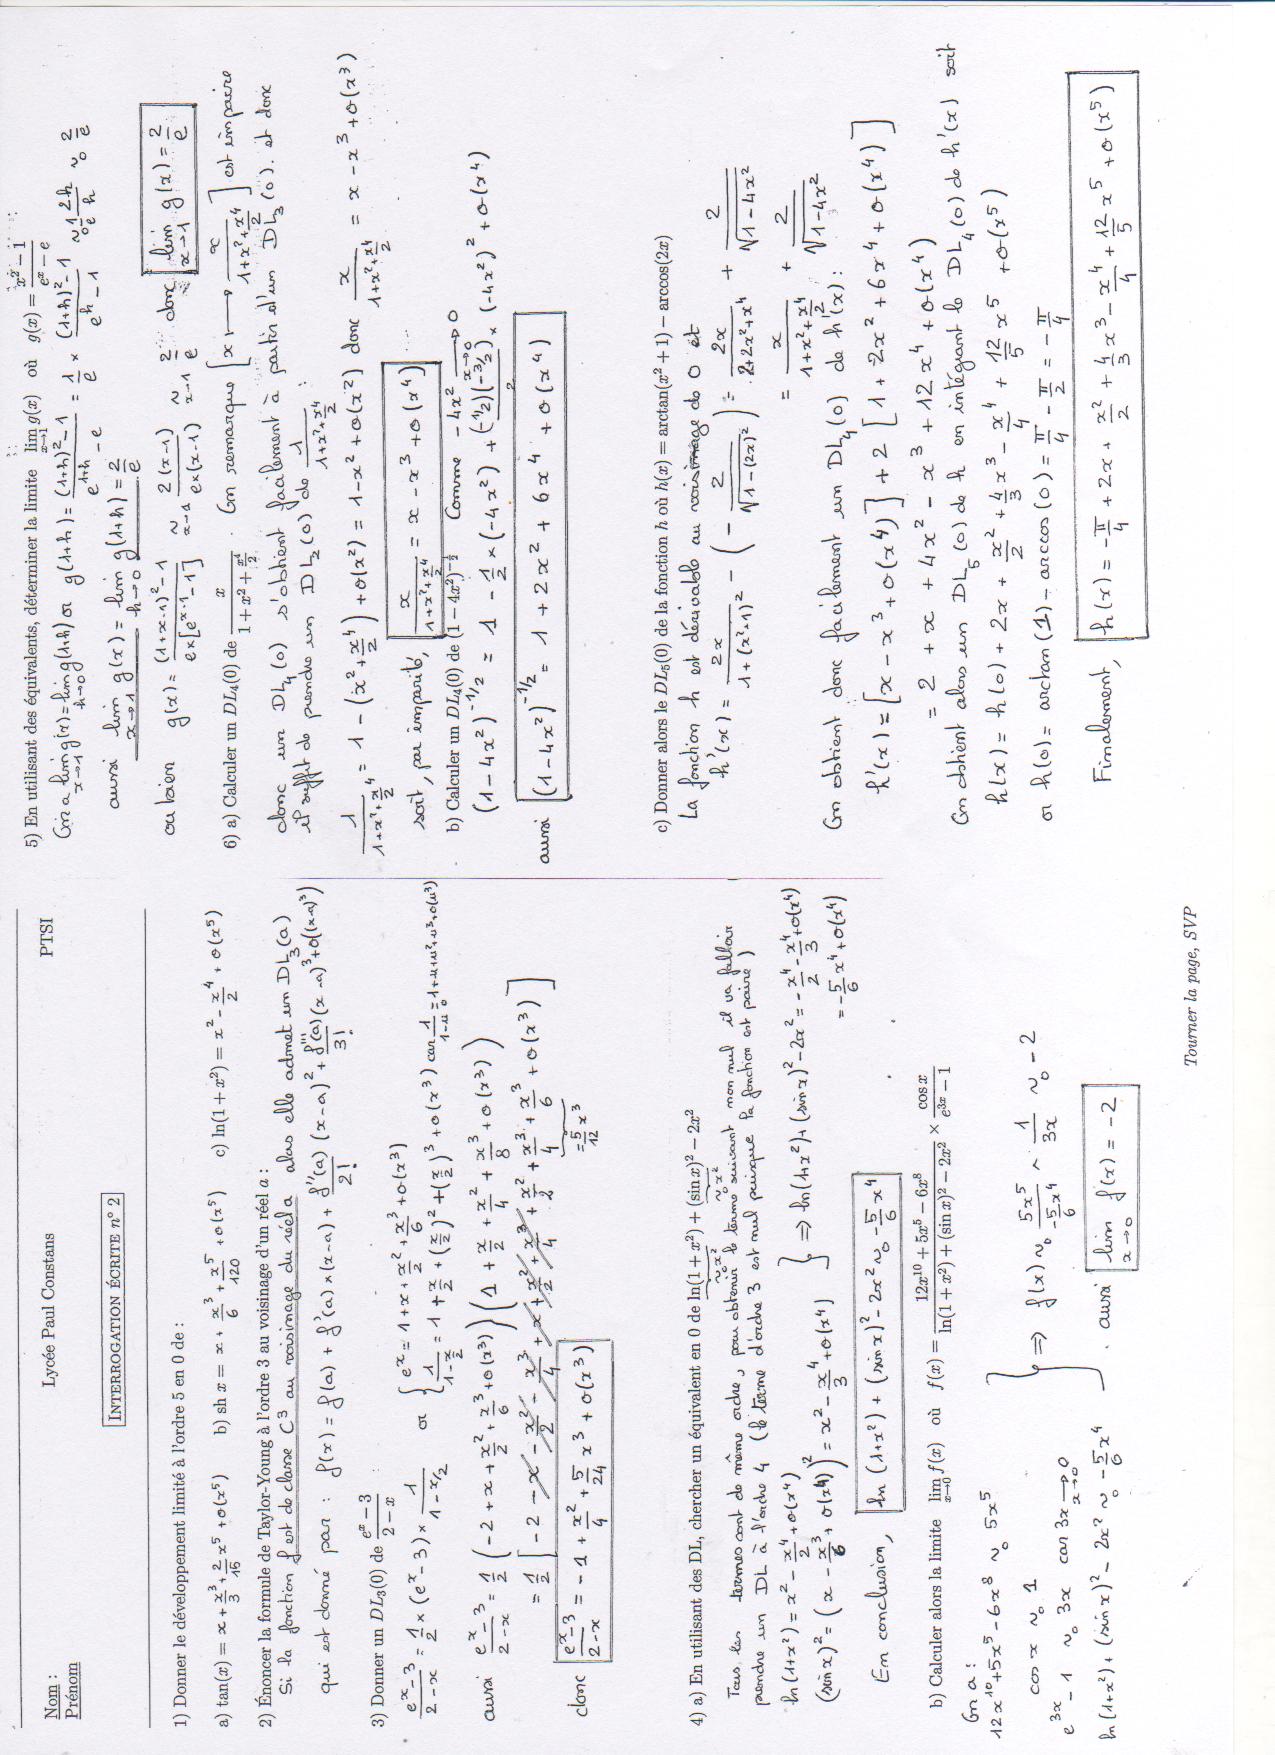 Nom : Lycée Paul Constans PTSI
Prénom
INTERROGATION ÉCRITE n° 2
1) Donner le développement limité à l'ordre 5 en 0 de :
a) tan(x) = x + x³/3 + 2/15 x⁵ + o(x⁵) b) sh x = x + x³/6 + x⁵/120 + o(x⁵) c) ln(1 + x²) = x² - x⁴/2 + o(x⁵)
2) Énoncer la formule de Taylor-Young à l'ordre 3 au voisinage d'un réel a :
Si la fonction f est de classe C³ au voisinage du réel a alors elle admet un DL₃(a)
qui est donné par : f(x) = f(a) + f'(a)×(x-a) + f''(a)/2! (x-a)² + f'''(a)/3! (x-a)³ + o((x-a)³)
3) Donner un DL₃(0) de (eˣ - 3)/(2 - x) :
(eˣ-3)/(2-x) = 1/2 × (eˣ-3) × 1/(1-x/2) or { eˣ = 1 + x + x²/2 + x³/6 + o(x³)
1/(1-x/2) = 1 + x/2 + (x/2)² + (x/2)³ + o(x³) car 1/(1-u) =₀ 1+u+u²+u³+o(u³)
aussi (eˣ-3)/(2-x) = 1/2 (-2 + x + x²/2 + x³/6 + o(x³)) (1 + x/2 + x²/4 + x³/8 + o(x³))
= 1/2 [-2 - x - x²/2 - x³/4 + x + x²/2 + x³/4 + x²/2 + x³/4 + x³/6 + o(x³)]
= 5/12 x³
donc (eˣ-3)/(2-x) = -1 + x²/4 + 5/24 x³ + o(x³)
4) a) En utilisant des DL, chercher un équivalent en 0 de ln(1 + x²) + (sin x)² - 2x²
~₀ x² ~₀ x²
Tous les termes sont de même ordre, pour obtenir le terme suivant non nul il va falloir
prendre un DL à l'ordre 4 (le terme d'ordre 3 est nul puisque la fonction est paire)
ln(1+x²) = x² - x⁴/2 + o(x⁴)
(sin x)² = (x - x³/6 + o(x⁴))² = x² - x⁴/3 + o(x⁴) } ⇒ ln(1+x²) + (sin x)² - 2x² = -x⁴/2 - x⁴/3 + o(x⁴)
= -5/6 x⁴ + o(x⁴)
En conclusion, ln(1+x²) + (sin x)² - 2x² ~₀ -5/6 x⁴
b) Calculer alors la limite lim x→0 f(x) où f(x) = (12x¹⁰ + 5x⁵ - 6x⁸)/(ln(1 + x²) + (sin x)² - 2x²) × cos x/(e³ˣ - 1)
On a :
12x¹⁰ + 5x⁵ - 6x⁸ ~₀ 5x⁵
cos x ~₀ 1
e³ˣ - 1 ~₀ 3x car 3x → 0 x→0
ln(1+x²) + (sin x)² - 2x² ~₀ -5/6 x⁴
} ⇒ f(x) ~₀ 5x⁵/(-5/6 x⁴) × 1/3x ~₀ -2
. aussi lim x→0 f(x) = -2
Tourner la page, SVP
5) En utilisant des équivalents, déterminer la limite lim x→1 g(x) où g(x) = (x² - 1)/(eˣ - e)
On a lim x→1 g(x) = lim h→0 g(1+h) or g(1+h) = ((1+h)² - 1)/(e¹⁺ʰ - e) = 1/e × ((1+h)² - 1)/(eʰ - 1) ~₀ 1/e 2h/h ~₀ 2/e
aussi lim x→1 g(x) = lim h→0 g(1+h) = 2/e
ou bien g(x) = ((1+x-1)² - 1)/(e×[eˣ⁻¹ - 1]) ~ x→1 2(x-1)/(e×(x-1)) ~ x→1 2/e donc lim x→1 g(x) = 2/e
6) a) Calculer un DL₄(0) de x/(1 + x² + x⁴/2) . On remarque [x ⟶ x/(1+x²+x⁴/2)] est impaire
donc un DL₄(0) s'obtient facilement à partir d'un DL₃(0). et donc
il suffit de prendre un DL₂(0) de 1/(1+x²+x⁴/2) :
1/(1+x²+x⁴/2) = 1 - (x² + x⁴/2) + o(x²) = 1 - x² + o(x²) donc x/(1+x²+x⁴/2) = x - x³ + o(x³)
soit, par imparité, x/(1+x²+x⁴/2) = x - x³ + o(x⁴)
b) Calculer un DL₄(0) de (1 - 4x²)^(-1/2) Comme -4x² → 0 x→0
(1 - 4x²)^(-1/2) = 1 - 1/2 × (-4x²) + (-1/2)(-3/2)/2 × (-4x²)² + o(x⁴)
aussi (1 - 4x²)^(-1/2) = 1 + 2x² + 6x⁴ + o(x⁴)
c) Donner alors le DL₅(0) de la fonction h où h(x) = arctan(x² + 1) - arccos(2x)
La fonction h est dérivable au voisinage de 0 et
h'(x) = 2x/(1 + (x²+1)²) - (- 2/√(1 - (2x)²)) = 2x/(2+2x²+x⁴) + 2/√(1-4x²)
= x/(1+x²+x⁴/2) + 2/√(1-4x²)
On obtient donc facilement un DL₄(0) de h'(x) :
h'(x) = [x - x³ + o(x⁴)] + 2 [1 + 2x² + 6x⁴ + o(x⁴)]
= 2 + x + 4x² - x³ + 12x⁴ + o(x⁴)
On obtient alors un DL₅(0) de h en intégrant le DL₄(0) de h'(x) soit
h(x) = h(0) + 2x + x²/2 + 4/3 x³ - x⁴/4 + 12/5 x⁵ + o(x⁵)
or h(0) = arctan(1) - arccos(0) = π/4 - π/2 = -π/4
Finalement, h(x) = -π/4 + 2x + x²/2 + 4/3 x³ - x⁴/4 + 12/5 x⁵ + o(x⁵)